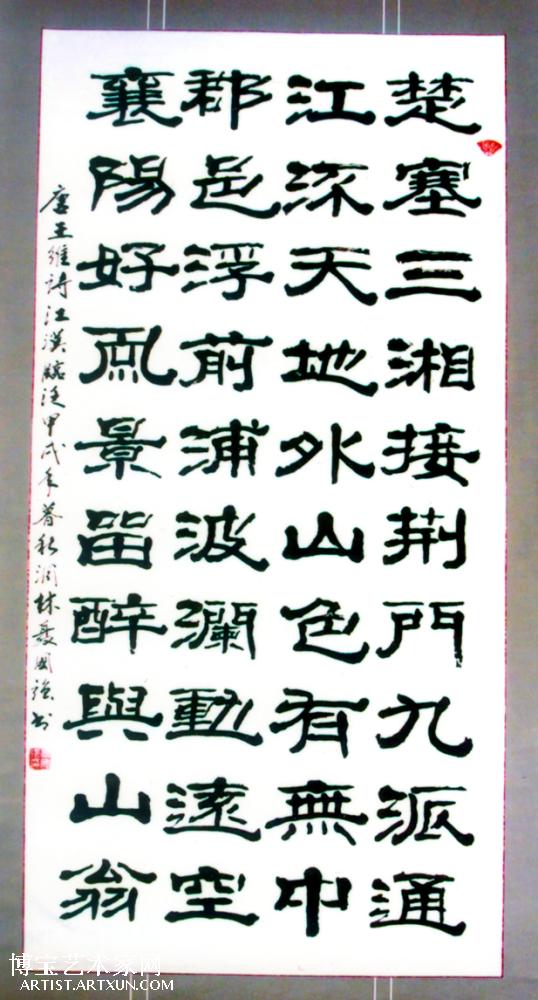 楚塞三湘接荆門九派通
江流天地外山色有無中
郡邑浮前浦波瀾動遠空
襄陽好風景留醉與山翁
唐王維詩江漢臨泛甲戌年暮秋林聂国强书
博宝艺术家网
ARTIST.ARTXUN.COM